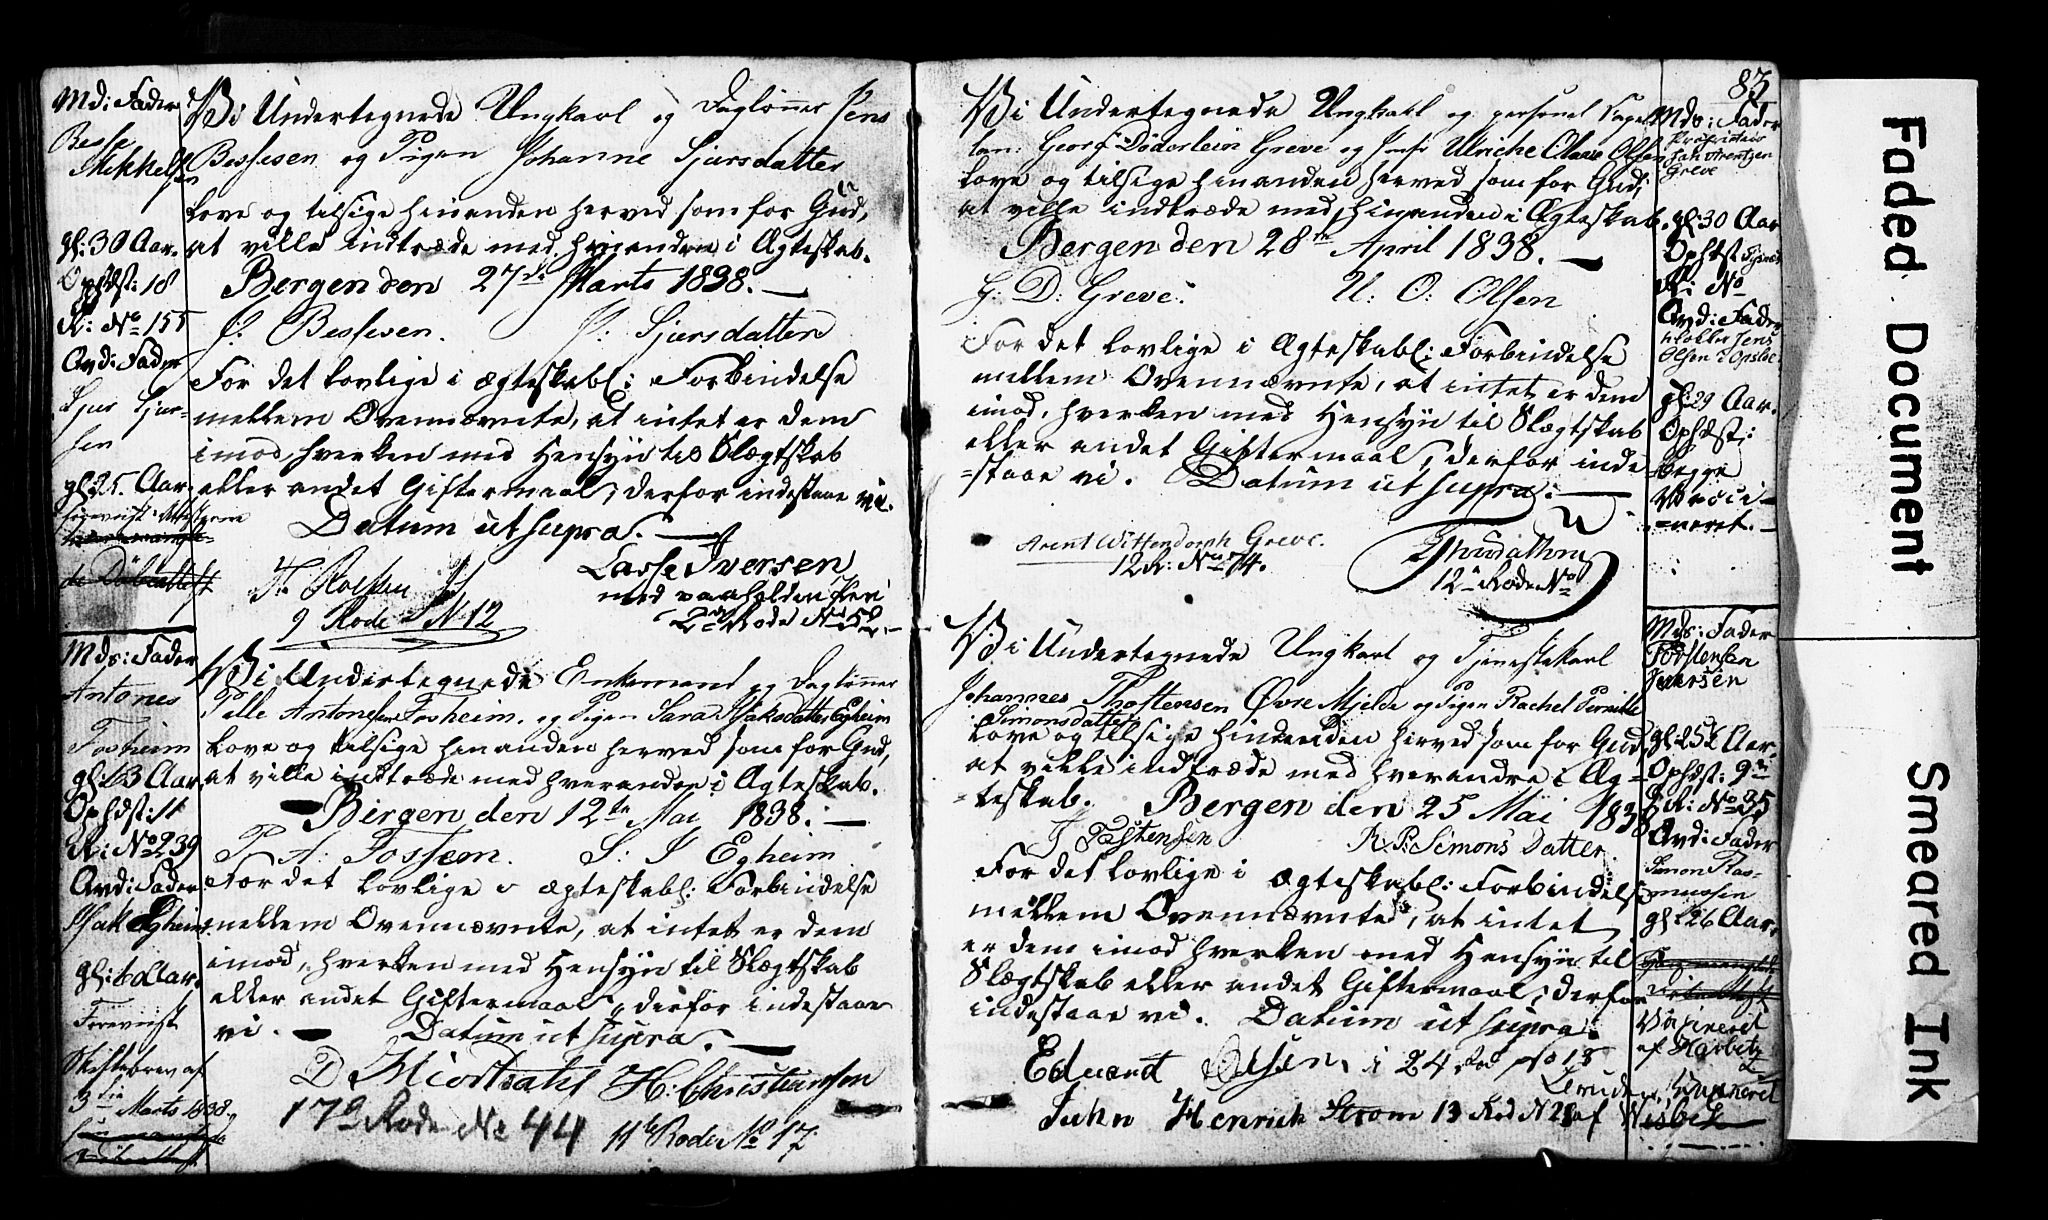 Md: Fader
Besse
Mikkelsen
gl: 30 Aar.
Ophdst: 18
R: No 155
Brd: Fader
Sjur Sjur-
sen
gl: 25. Aar.
Vi Undertegnede Ungkarl og Daglønner Jens
Bessesen og Pigen Johanne Sjursdatter
love og tilsige hinanden herved som for Gud,
at ville indtræde med hinanden i Ægteskab.
Bergen den 27de Marts 1838.
J. Bessesen. J: Sjursdatter
For det lovlige i ægteskabl: Forbindelse
mellem Ovennævnte, at intet er dem
imod, hverken med Hensyn til Slægtskab
eller andet Giftermaal, derfor indestaae vi.
Datum ut supra.
Lasse Iversen
med paaholden Pen
2den Rode No 52.
9 Rode N 12
Mds: Fader
Antones
Fosheim
gl: 63 Aar
Ophdst: 11
R: No 239
Brd: Fader
Isak Egheim
gl: 60 Aar.
Foreviist
Skiftebrev af
3die Marts 1838.
Vi Undertegnede Enkemand og Daglønner
Pelle Antonesen Fosheim. og Pigen Sara Isaksdatter Egheim
love og tilsige hinanden herved som for Gud,
at ville indtræde med hverandre i Ægteskab.
Bergen den 12te Mai 1838.
P A: Fossem. S: I Egheim
For det lovlige i ægteskabl: Forbindelse
mellem Ovennævnte, at intet er dem
imod, hverken med Hensyn til Slægtskab
eller andet Giftermaal, derfor indestaae
vi. Datum ut supra.
H: Christiansen
17de Rode No 44
11te Rode No 17
83
Vi Undertegnede Ungkarl og personel Capel
lan: Georg Döderlein Greve og Jomfr Ulriche Olave Olsen
love og tilsige hinanden herved som for Gud;
at ville indtræde med hinanden i Ægteskab.
Bergen den 28de April 1838.
G: D: Greve. U: O: Olsen
For det lovlige i Ægteskabl: Forbindelse
mellem Ovennævnte, at intet er dem
imod, hverken med Hensyn til Slægtskab
eller andet Giftermaal, derfor inde
=staae vi. Datum ut supra.
Arent Wittendorph Greve.
12 R: No 74.
12te Rode No
Mds: Fader
Proprietair
Jah Arentzen
Greve
gl: 30 Aar
Ophdst
R: No
Brd: Fader
Klokker Jens
Olsen
gl: 29 Aar.
Ophdst:
begge
Vacci=
=neret.
Vi Undertegnede Ungkarl og Tjenestekarl
Johannes Thostensen Øvre Mjelde og Pigen Rachel Pernille
Simonsdatter
love og tilsige hinanden herved som for Gud,
at ville indtræde med hverandre i Æg=
=teskab. Bergen den 25 Mai 1838
J Tostensen R. P. Simons Datter.
For det lovlige i ægteskabl: Forbindelse
mellem Ovennævnte, at intet
er dem imod hverken med Hensyn til
Slægtskab eller andet Giftermaal, derfor
indestaae vi. Datum ut supra.
Eduardt Olsen i 24 Rod No 18
Juhn Henrich Strøm 13 Rod N 28
Mds: Fader
Torstensen
Iversen
gl: 25½ Aar.
Ophdst: 9
R: No 35
Brd: Fader
Simon Ras-
mussen
gl: 26 Aar.
Vaxineret
af Harbitz
Bruden Vaxineret
af Wisbek
Faded Document
Smeared Ink